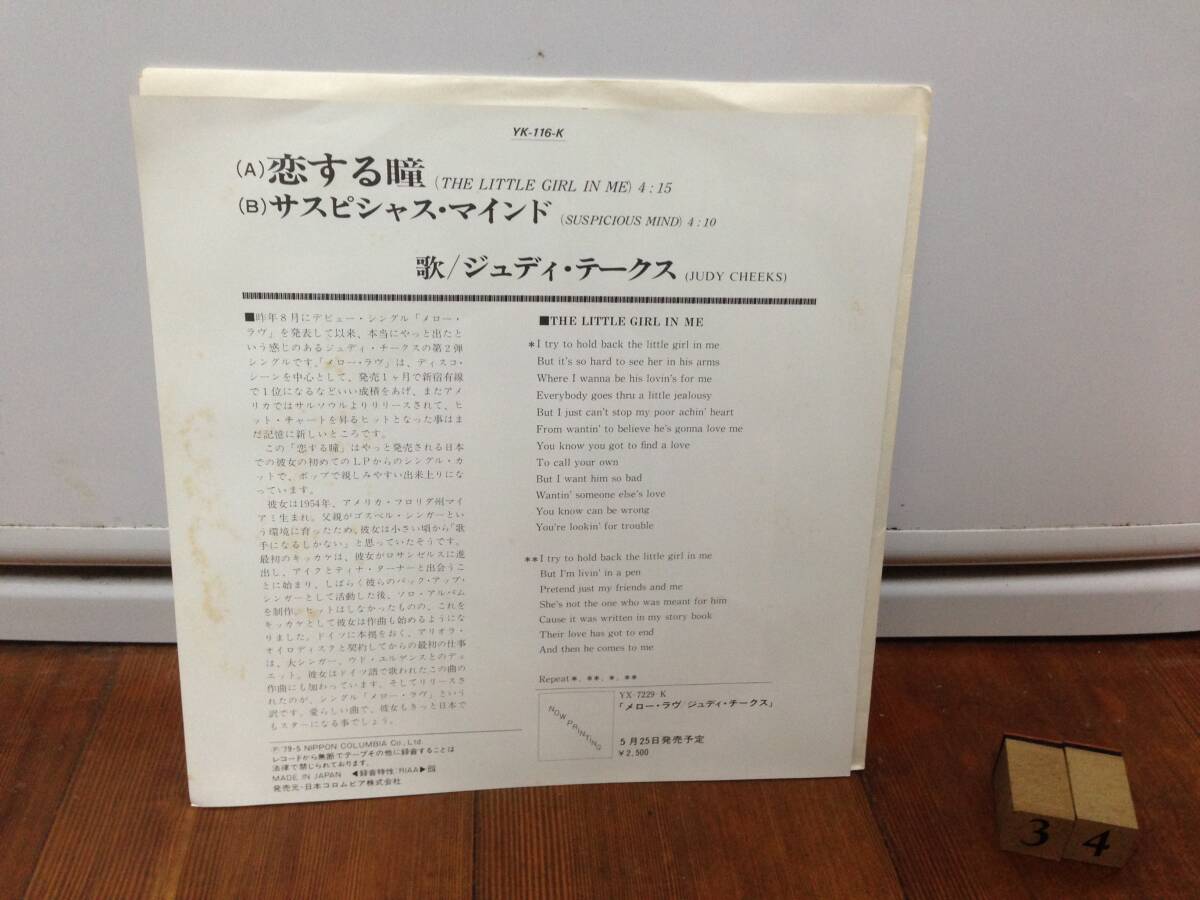 YK-116-K
(A)恋する瞳 (THE LITTLE GIRL IN ME) 4:15
(B)サスピシャス・マインド (SUSPICIOUS MIND) 4:10
歌/ジュディ・テークス (JUDY CHEEKS)
■昨年8月にデビュー・シングル「メロー・
ラヴ」を発表して以来、本当にやっと出たと
いう感じのあるジュディ・チークスの第2弾
シングルです。「メロー・ラヴ」は、ディスコ・
シーンを中心として、発売1ヶ月で新宿有線
で1位になるなどいい成積をあげ、またアメ
リカではサルソウルよりリリースされて、ヒ
ット・チャートを昇るヒットとなった事はま
だ記憶に新しいところです。
この「恋する瞳」はやっと発売される日本
での彼女の初めてのLPからのシングル・カ
ットで、ポップで親しみやすい出来上りにな
っています。
彼女は1954年、アメリカ・フロリダ州マイ
アミ生まれ。父親がゴスペル・シンガーとい
う環境に育ったため、彼女は小さい頃から「歌
手になるしかない」と思っていたそうです。
最初のキッカケは、彼女がロサンゼルスに進
出し、アイクとティナ・ターナーと出会うこ
とに始まり、しばらく彼らのバック・アップ・
シンガーとして活動した後、ソロ・アルバム
を制作。ヒットはしなかったものの、これを
キッカケとして彼女は作曲も始めるようにな
りました。ドイツに本拠をおく、アリオラ・
オイロディスクと契約してからの最初の仕事
は、大シンガー、ウド・エルゲンスとのデュ
エット。彼女はドイツ語で歌われたこの曲の
作曲にも加わっています。そしてリリースさ
れたのが、シングル「メロー・ラヴ」という
訳です。愛らしい曲で、彼女もきっと日本で
もスターになる事でしょう。
Ⓟ'79・5 NIPPON COLUMBIA Co., Ltd.
レコードから無断でテープその他に録音することは
法律で禁じられております。
MADE IN JAPAN ◀録音特性:RIAA▶
発売元・日本コロムビア株式会社
■THE LITTLE GIRL IN ME
*I try to hold back the little girl in me
But it's so hard to see her in his arms
Where I wanna be his lovin's for me
Everybody goes thru a little jealousy
But I just can't stop my poor achin' heart
From wantin' to believe he's gonna love me
You know you got to find a love
To call your own
But I want him so bad
Wantin' someone else's love
You know can be wrong
You're lookin' for trouble
**I try to hold back the little girl in me
But I'm livin' in a pen
Pretend just my friends and me
She's not the one who was meant for him
Cause it was written in my story book
Their love has got to end
And then he comes to me
Repeat *, **, *, **
NOW PRINTING
YX-7229-K
「メロー・ラヴ ジュディ・チークス」
5月25日発売予定
¥2,500
3 4